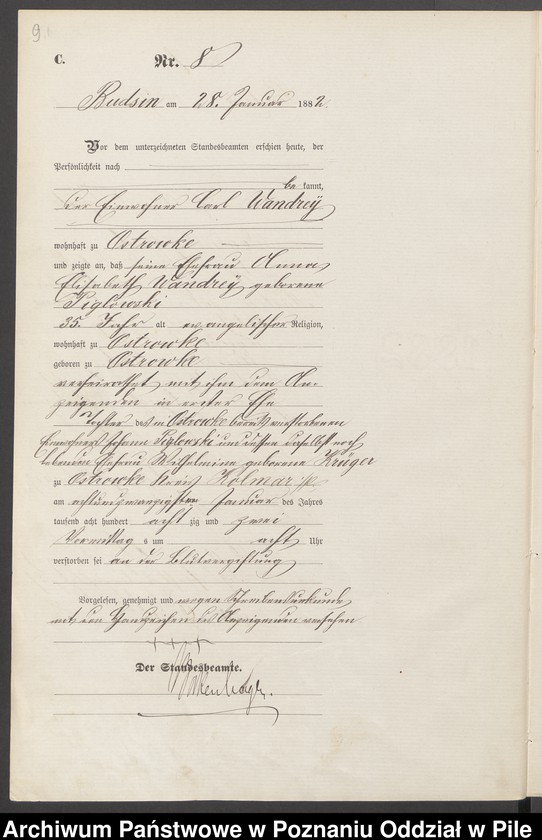 9
C.
Nr. 8
Budsin am 28. Januar 1882.
Vor dem unterzeichneten Standesbeamten erschien heute, der
Persönlichkeit nach
be kannt,
der Einwohner Carl Wandrey
wohnhaft zu Ostrowke
und zeigte an, daß seine Ehefrau Anna
Elisabeth Wandrey geborene
Piglowski
35. Jahr alt evangelischer Religion,
wohnhaft zu Ostrowke
geboren zu Ostrowke
verheirathet mit ihm dem An-
zeigenden in erster Ehe
Tochter des in Ostrowke bereits verstorbenen
Einwohners Johann Piglowski und dessen daselbst noch
lebenden Ehefrau Wilhelmine geborene Krüger
zu Ostrowke Kreis Kolmar i/P
am achtundzwanzigsten Januar des Jahres
tausend acht hundert acht zig und zwei
Vormittag s um acht Uhr
verstorben sei an der Blutvergiftung
Vorgelesen, genehmigt und wegen Schreibensunkunde
mit den Handzeichen des Anzeigenden versehen
+++
Der Standesbeamte.
Archiwum Państwowe w Poznaniu Oddział w Pile